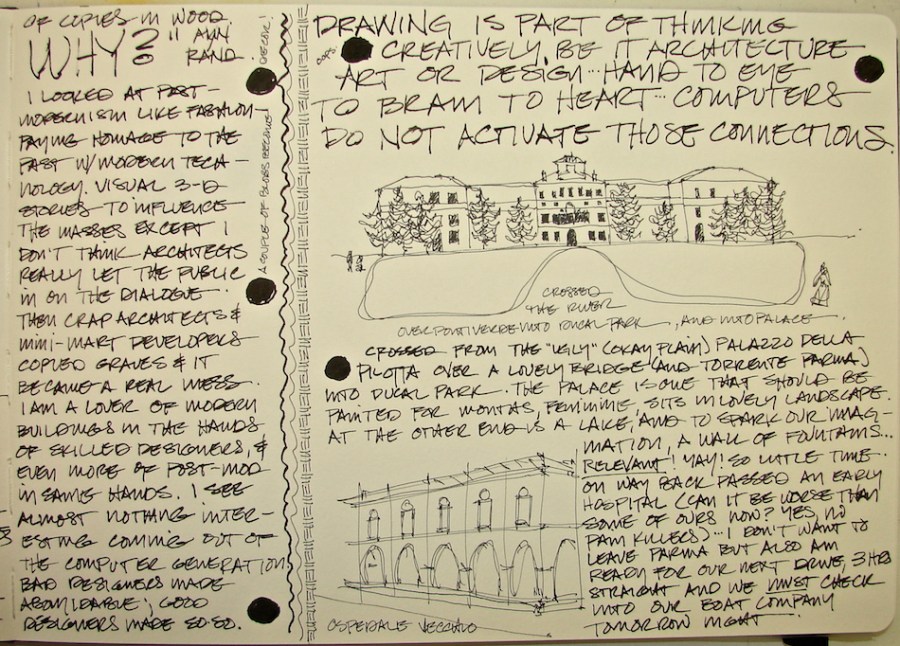 OF COPIES IN WOOD.
WHY? " AYN
RAND.
I LOOKED AT POST-
MODERNISM LIKE FASHION-
PAYING HOMAGE TO THE
PAST W/MODERN TECH-
NOLOGY. VISUAL 3-D
STORIES TO INFLUENCE
THE MASSES EXCEPT I
DON'T THINK ARCHITECTS
REALLY LET THE PUBLIC
IN ON THE DIALOGUE.
THEN CRAP ARCHITECTS &
MINI-MART DEVELOPERS
COPIED GRAVES & IT
BECAME A REAL MESS.
I AM A LOVER OF MODERN
BUILDINGS IN THE HANDS
OF SKILLED DESIGNERS, &
EVEN MORE OF POST-MOD
IN SAME HANDS. I SEE
ALMOST NOTHING INTER-
ESTING COMING OUT OF
THE COMPUTER GENERATION
BAD DESIGNERS MADE
; GOOD
DESIGNERS MADE SO-SO.
A COUPLE OF BECAME
OOPS.
DRAWING IS PART OF THINKING
CREATIVELY, BE IT ARCHITECTURE
ART OR DESIGN... HAND TO EYE
TO BRAIN TO HEART... COMPUTERS
DO NOT ACTIVATE THOSE CONNECTIONS.
CROSSED
THE RIVER
OVER PONTI VERDE INTO DUCAL PARK, AND INTO PALACE
CROSSED FROM THE "UGLY" (OKAY PLAIN) PALAZZO DELLA
PILOTTA OVER A LOVELY BRIDGE (AND TORRENTE PARMA)
INTO DUCAL PARK. THE PALACE IS ONE THAT SHOULD BE
PAINTED FOR MONTHS, FEMININE SITS IN LOVELY LANDSCAPE.
AT THE OTHER END IS A LAKE, AND TO SPARK OUR IMAG-
INATION, A WALL OF FOUNTAINS...
RELEVANT! YAY! SO LITTLE TIME.
ON WAY BACK PASSED AN EARLY
HOSPITAL (CAN IT BE WORSE THAN
SOME OF OURS NOW? YES, NO
PAIN KILLERS)... I DON'T WANT TO
LEAVE PARMA BUT ALSO AM
READY FOR OUR NEXT DRIVE, 3 HRS
STRAIGHT AND WE MUST CHECK
INTO OUR BOAT COMPANY
TOMORROW NIGHT
OSPEDALE VECCHIO